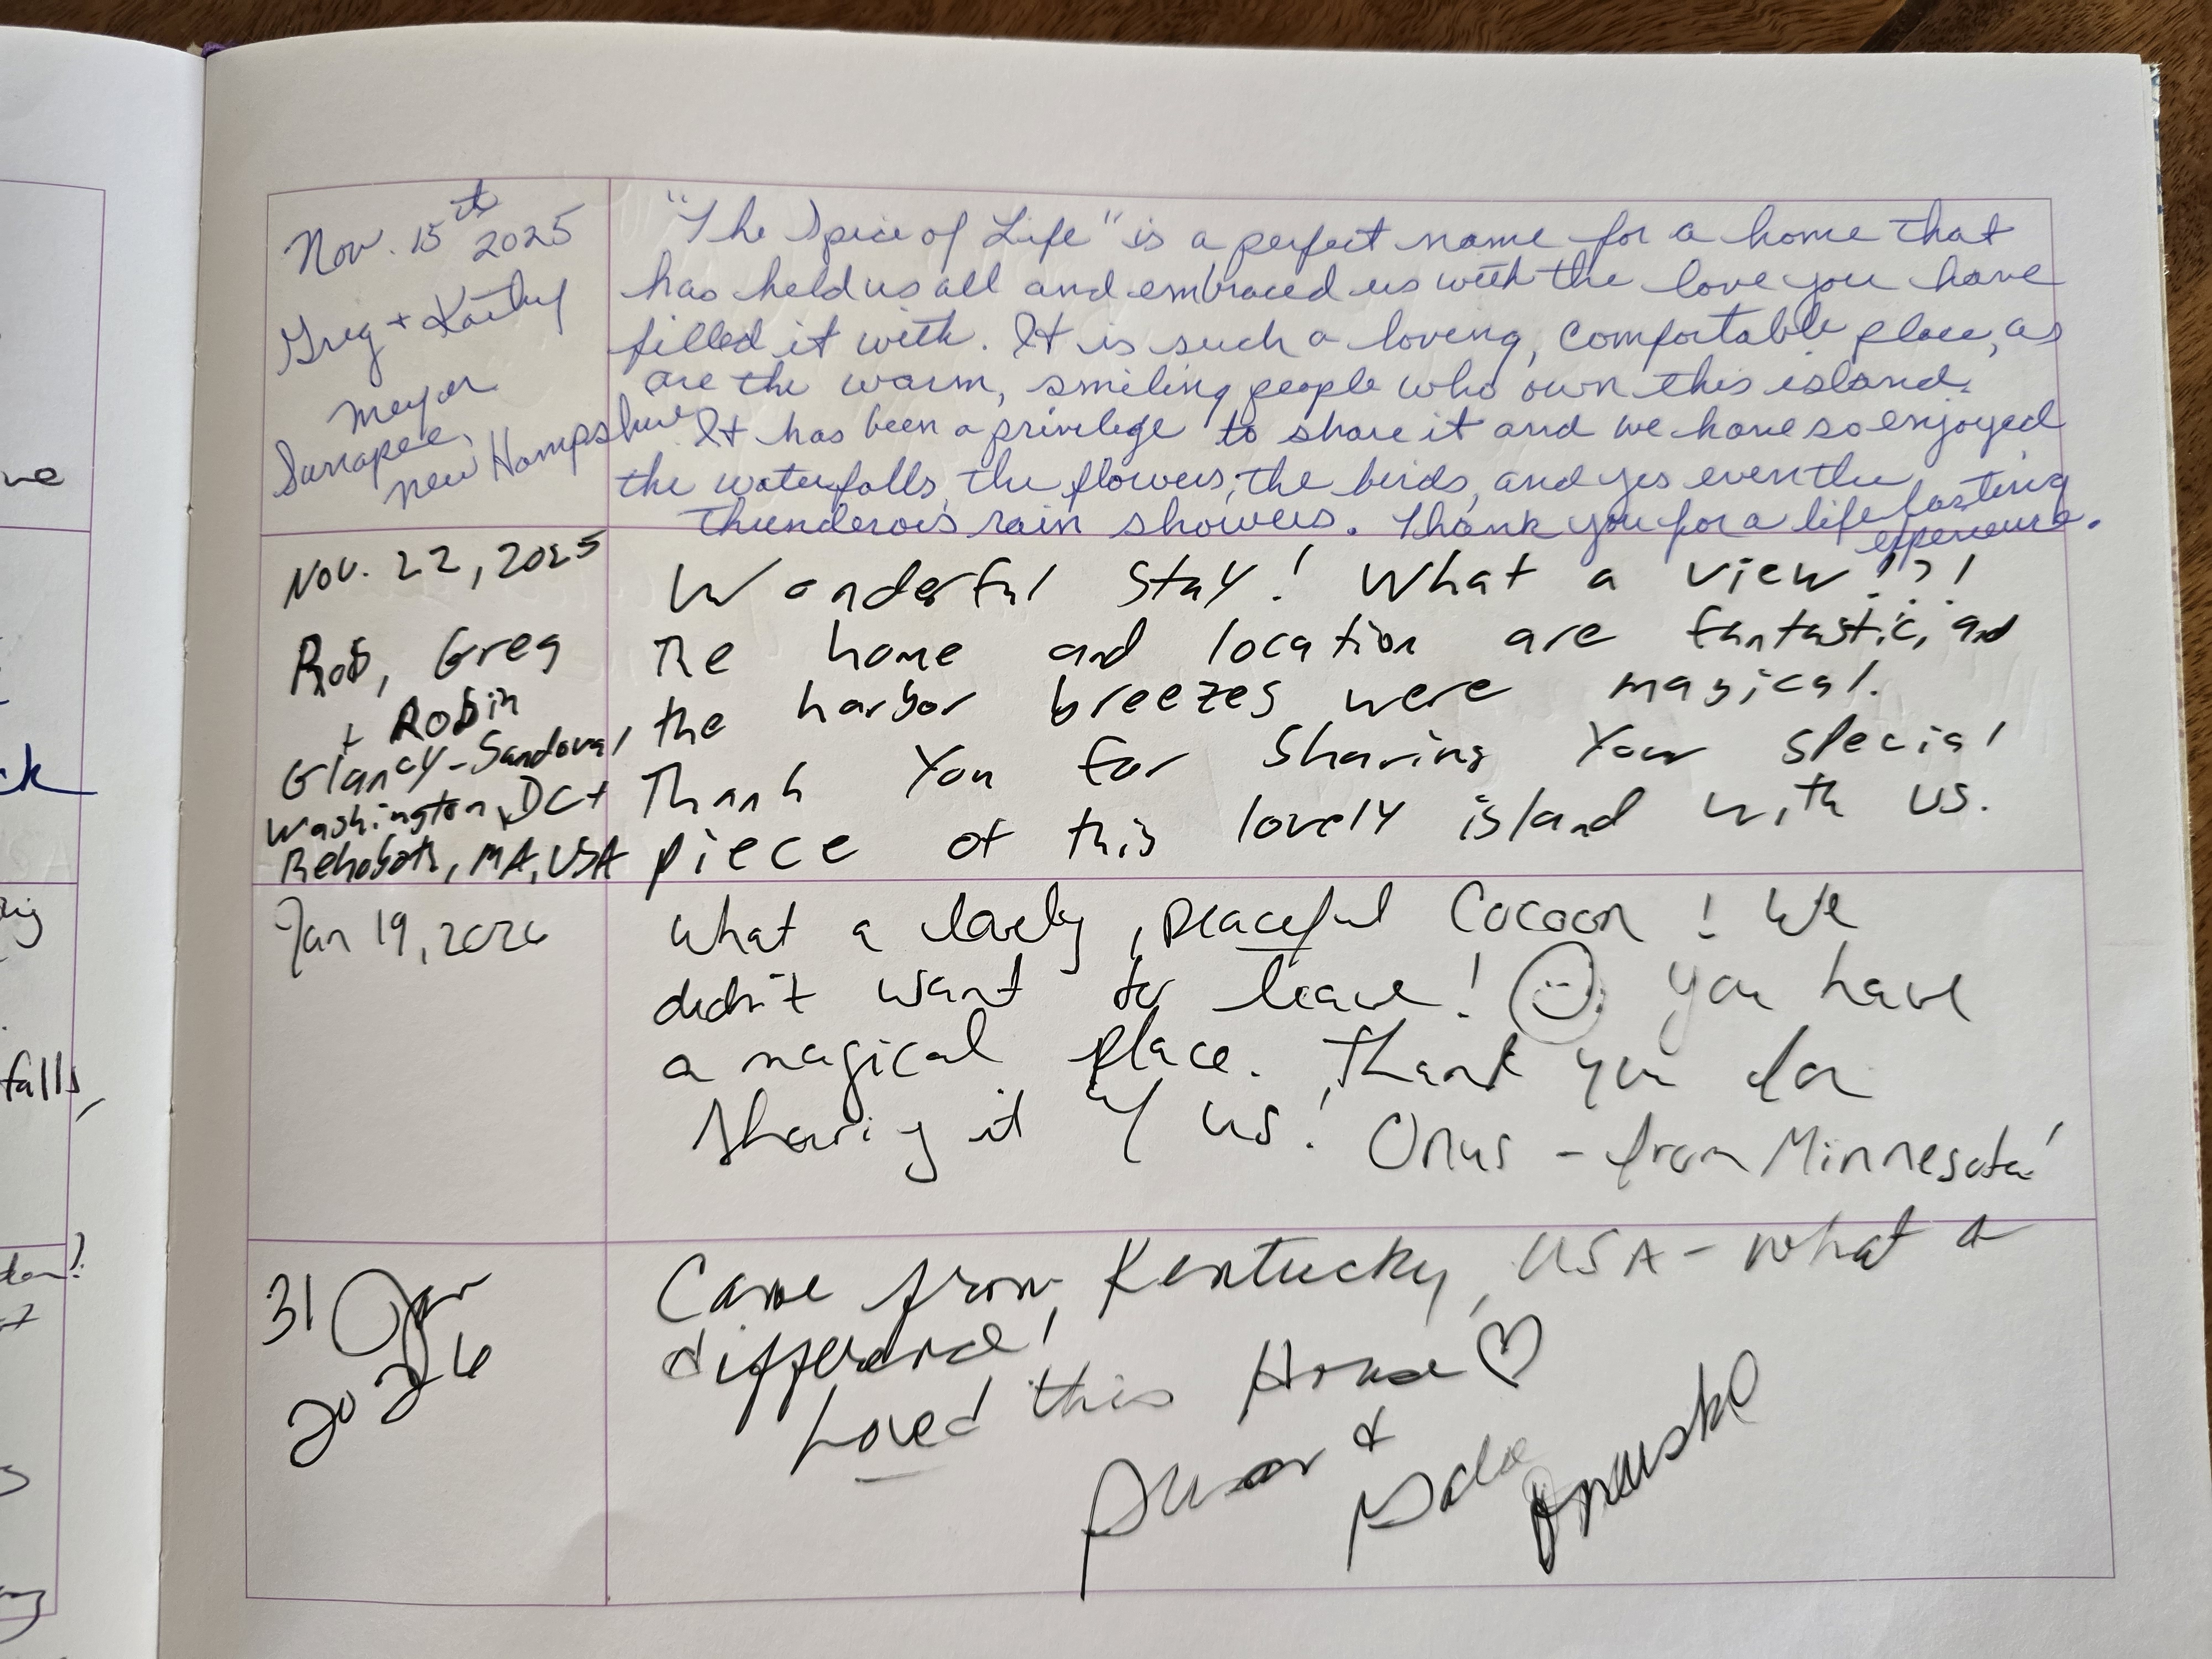 ve
ck
falls,
Nov. 15th 2025
Greg + Kathy
Meyer
Sunapee,
New Hampshire
"The Spice of Life" is a perfect name for a home that
has held us all and embraced us with the love you have
filled it with. It is such a loving, comfortable place, as
are the warm, smiling people who own this island.
It has been a privilege to share it and we have so enjoyed
the waterfalls, the flowers, the birds, and yes even the
thunderous rain showers. Thank you for a life lasting
experience.
Nov. 22, 2025
Rob, Greg
+ Robin
Glancy-Sandoval
Washington, DC +
Rehoboth, MA, USA
Wonderful stay! What a view!?!
The home and location are fantastic, and
the harbor breezes were magical.
Thank you for sharing your special
piece of this lovely island with us.
Jan 19, 2026
What a lovely, peaceful cocoon! We
didn't want to leave! You have
a magical place. Thank you for
sharing it w/ us! - from Minnesota!
31 Jan
2026
Came from Kentucky, USA - what a
difference!
Loved this House
&